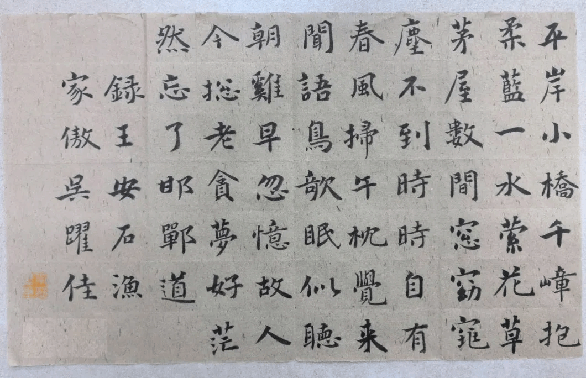 平岸小橋千嶂抱
柔藍一水縈花草
茅屋數間窓窈窕
塵不到時時自有
春風掃午枕覺来
聞語鳥欹眠似聽
朝雞早忽憶故人
今揔老貪夢好茫
然忘了邯鄲道
録王安石漁
家傲吳躍佳